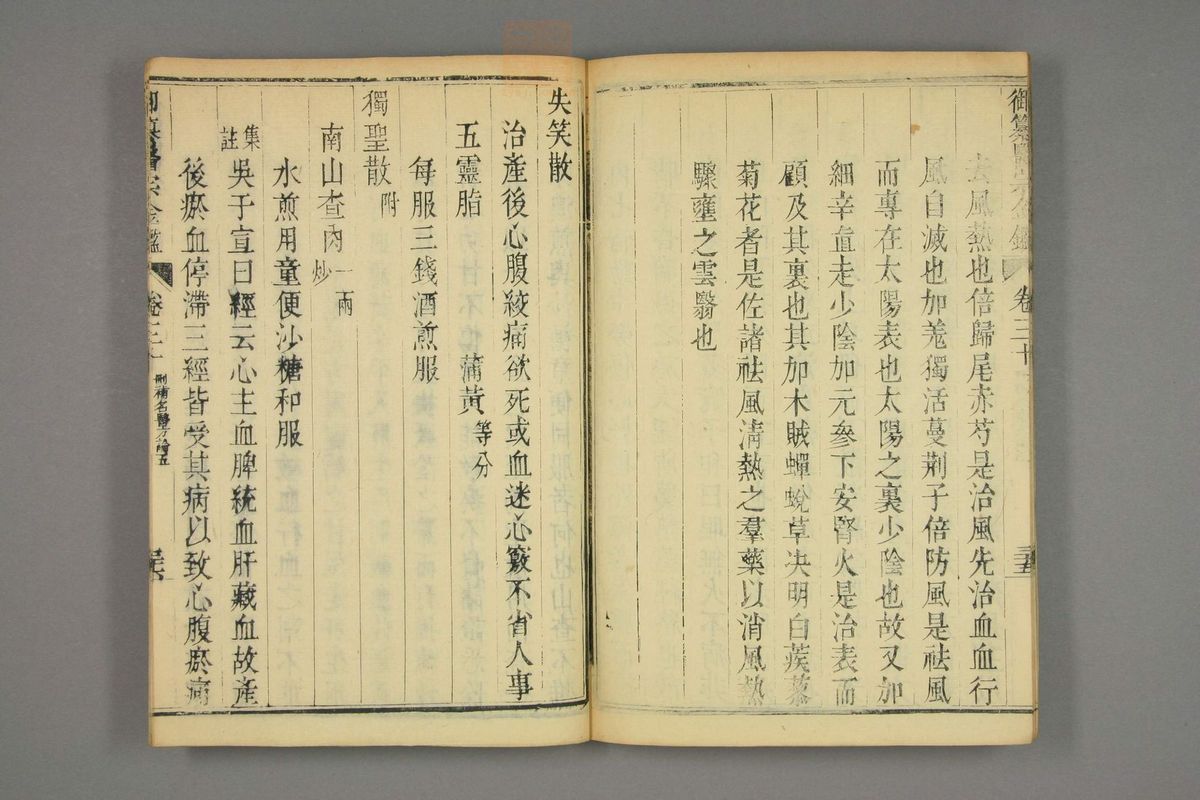 御纂醫宗金鑑 卷三十
去風熱也倍歸尾赤芍是治風先治血血行
風自滅也加羌獨活蔓荆子倍防風是祛風
而專在太陽表也太陽之裏少陰也故又加
細辛直走少陰加元參下安腎火是治表而
顧及其裏也其加木賊蟬蛻草决明白蒺蔾
菊花者是佐諸祛風淸熱之羣藥以消風熱
驟壅之雲翳也
失笑散
治產後心腹絞痛欲死或血迷心竅不省人事
五靈脂 蒲黃 等分
每服三錢酒煎服
獨聖散 附
南山查肉 一兩 炒
水煎用童便沙糖和服
集註 吳子宣曰經云心主血脾統血肝藏血故產
後瘀血停滯三經皆受其病以致心腹瘀痛
御纂醫宗金鑑 卷三 刪補名醫方論五